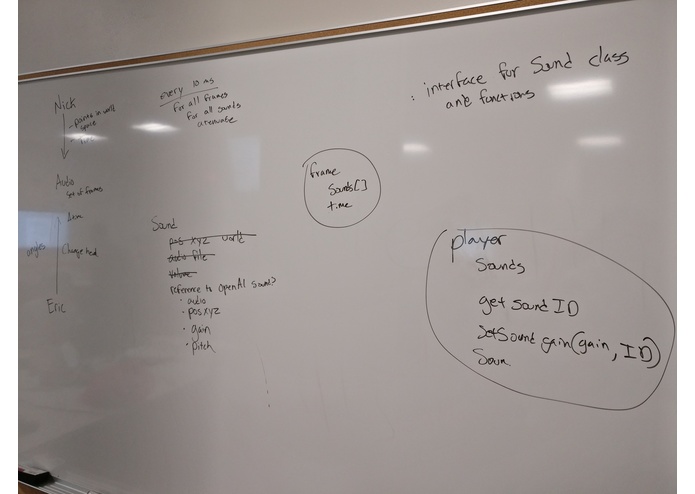 Nick
- points in world
space
- time
Audio
Set of frames
Atime
angles
Change head
Eric
every 10 ms
for all frames
for all sounds
attenuate
frame
Sounds[]
time
Sound
pos xyz world
audio file
volume
reference to OpenAl sound?
· audio
· pos xyz
· gain
· pitch
: interface for Sound class
and functions
player
Sounds
get sound ID
Set Sound gain(gain, ID)
Soun